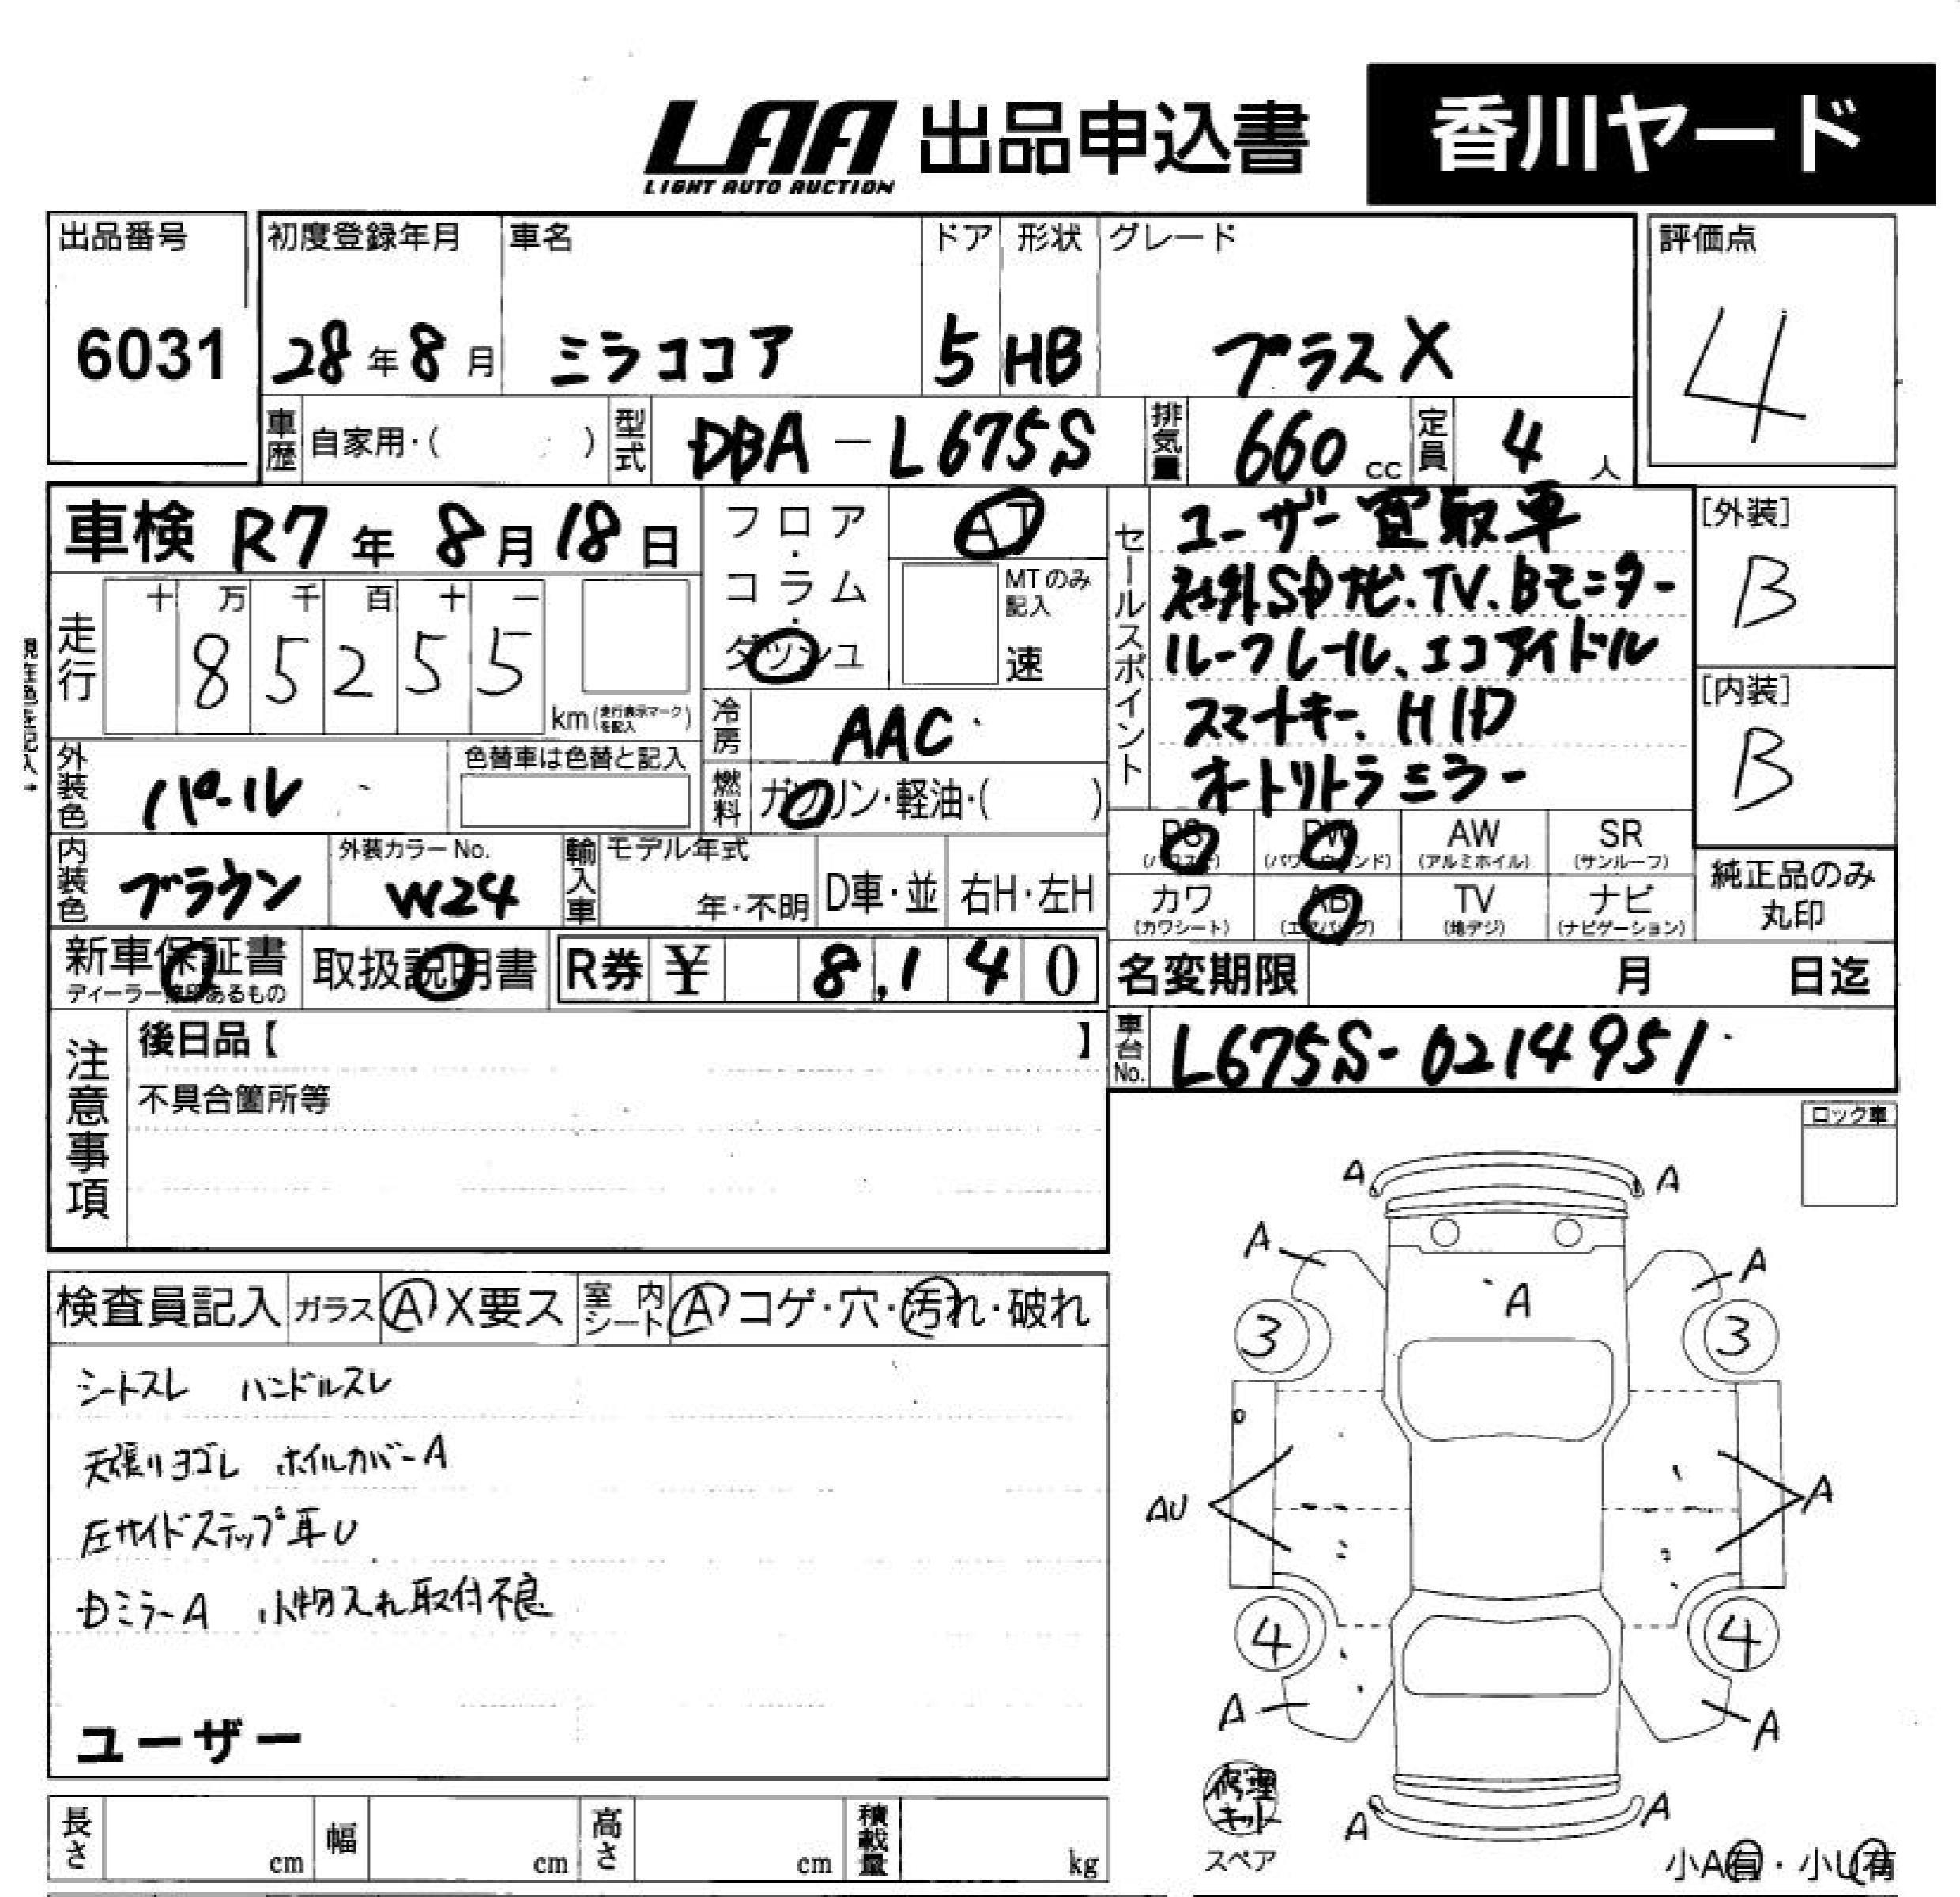 LAA 出品申込書 香川ヤード
LIGHT AUTO AUCTION
出品番号 初度登録年月 車名 ドア 形状 グレード 評価点
6031 28年8月 ミラココア 5 HB プラスX 4
車歴 自家用・( ) 型式 DBA-L675S 排気量 660 cc 定員 4 人
車検 R7年 8月18日
フロア・コラム・ダッシュ
AT
MTのみ記入
速
セールスポイント
ユーザー買取車
社外SDナビ、TV、Bモニター
ルーフレール、エコアイドル
スマートキー、HID
オートリトラミラー
[外装]
B
[内装]
B
現在色を記入→
走行 十 万 千 百 十 一
8 5 2 5 5
km(走行表示マークを記入)
冷房 AAC
外装色 パール 色替車は色替と記入
燃料 ガソリン・軽油・( )
内装色 ブラウン 外装カラーNo. W24
輸入車 モデル年式 年・不明 D車・並 右H・左H
PS AW SR
PW (アルミホイル) (サンルーフ)
カワ AB TV ナビ
(カワシート) (エアバッグ) (地デジ) (ナビゲーション)
純正品のみ
丸印
新車保証書 取扱説明書 R券 ¥ 8,140
ディーラー捺印あるもの
名変期限 月 日迄
車台No. L675S-0214951
注意事項
後日品【 】
不具合箇所等
ロック車
検査員記入 ガラス A X要ス 室内シート A コゲ・穴・汚れ・破れ
シートスレ ハンドルスレ
天張りヨゴレ ホイルカバーA
左サイドステップ耳U
Dミラー A 小物入れ取付不良
ユーザー
A A
A A
A
3 3
AU A
4 4
A A
A A
修理キット
スペア
小A有・小U有
長さ cm 幅 cm 高さ cm 積載量 kg